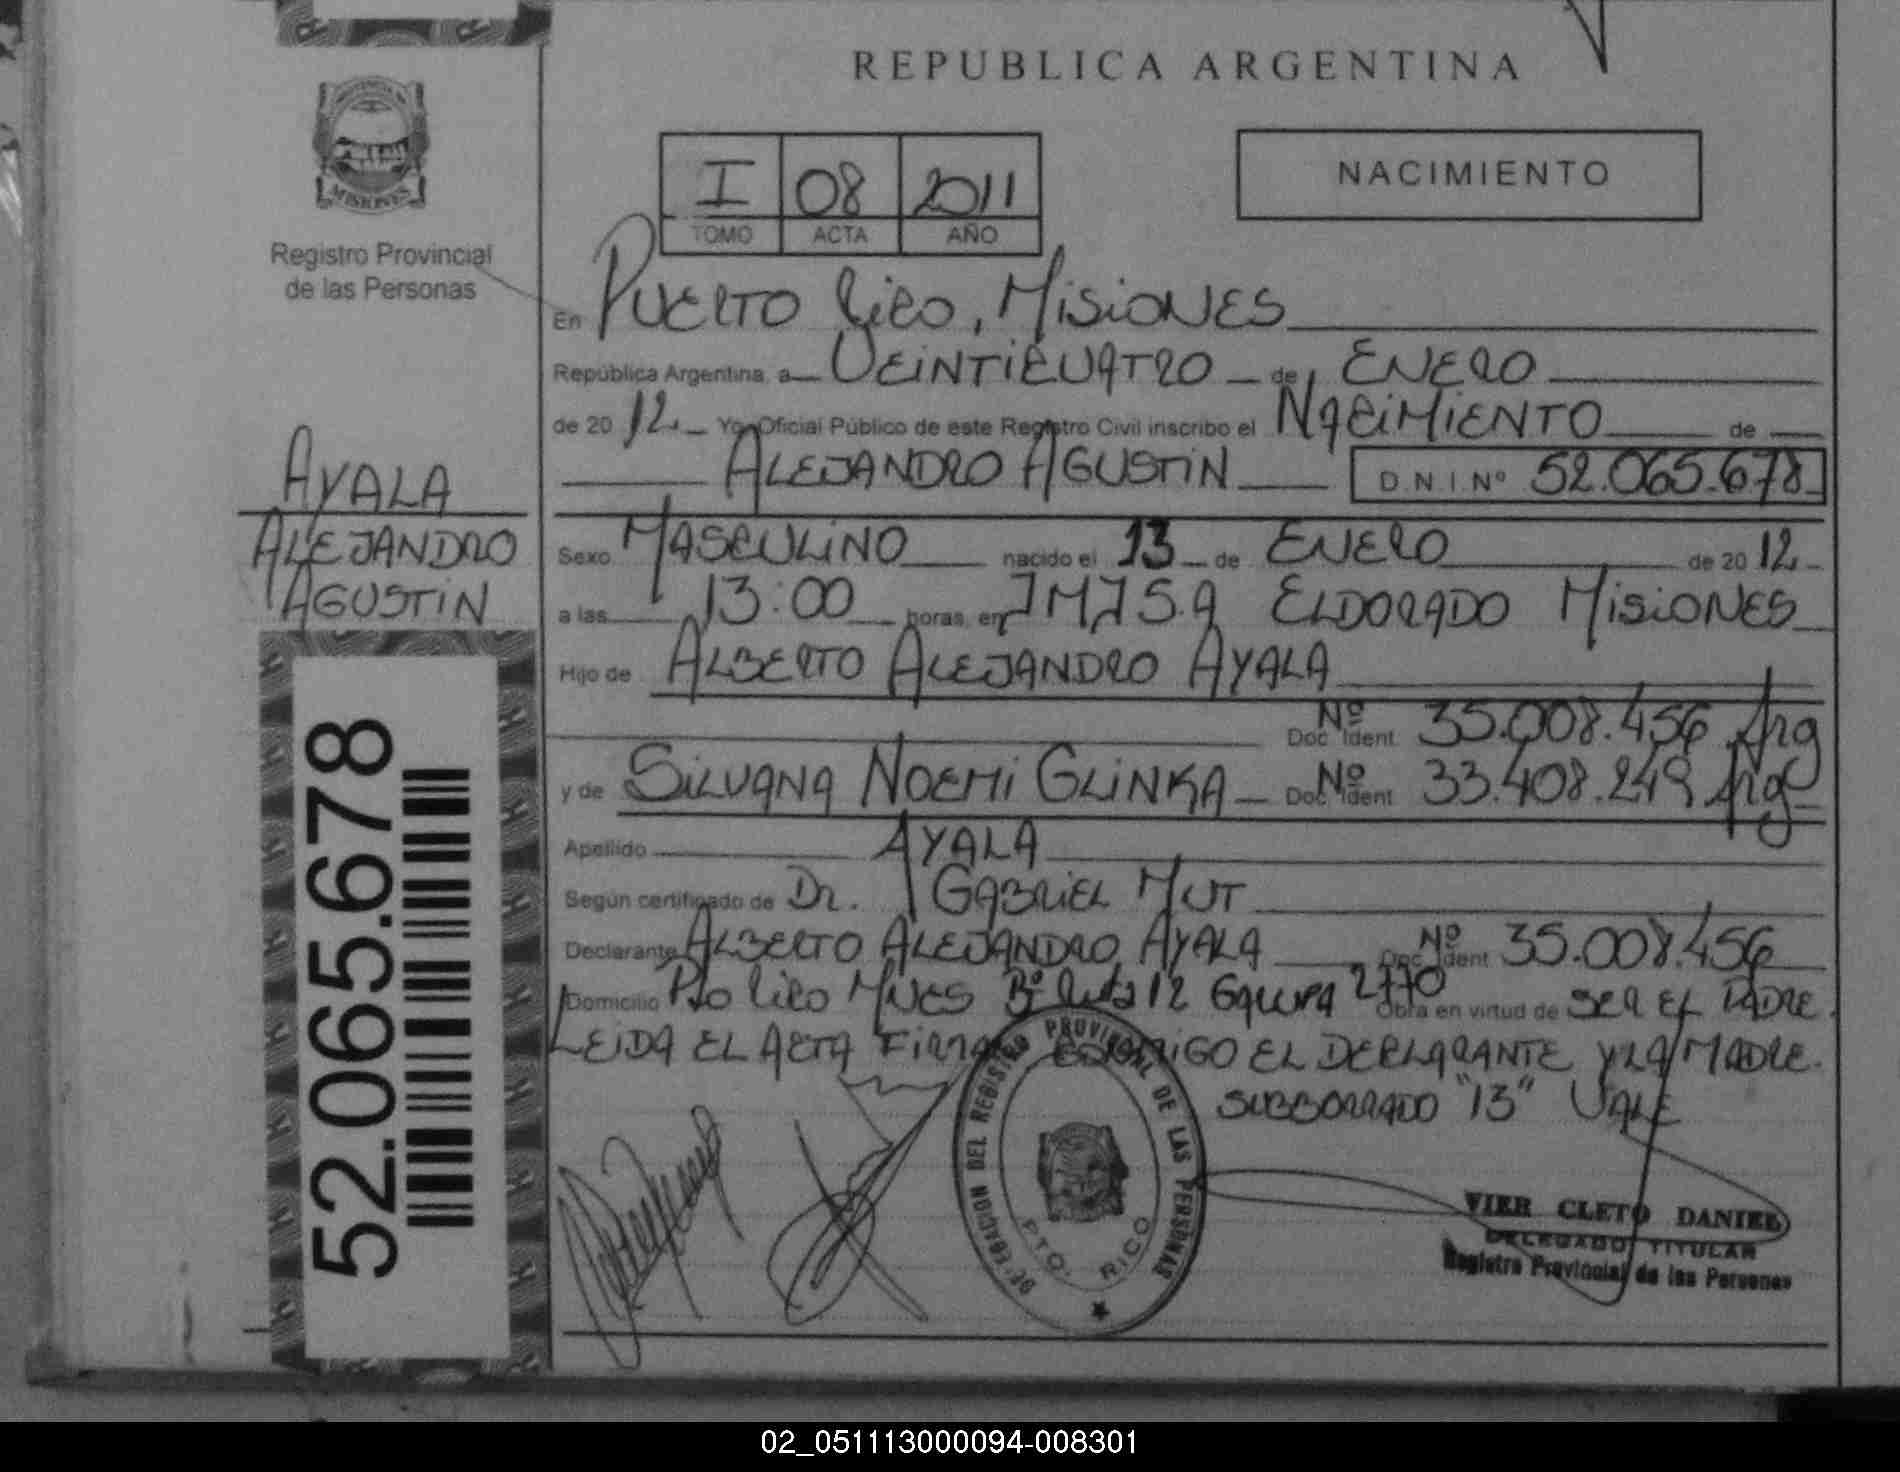 REPUBLICA ARGENTINA
I 08 2011
TOMO ACTA AÑO
NACIMIENTO
MISIONES
Registro Provincial
de las Personas
AYALA
ALEJANDRO
AGUSTIN
52.065.678
En PUERTO RICO, MISIONES
República Argentina, a VEINTICUATRO de ENERO
de 2012 Yo, Oficial Público de este Registro Civil inscribo el NACIMIENTO de
ALEJANDRO AGUSTIN D.N.I.Nº 52.065.678
Sexo MASCULINO nacido el 13 de ENERO de 2012
a las 13:00 horas, en ELDORADO MISIONES
Hijo de ALBERTO ALEJANDRO AYALA
Nº Doc. Ident. 35.008.456 Arg
y de SILVANA NOEMI GLINKA Nº Doc. Ident. 33.408.249 Arg
Apellido AYALA
Según certificado de Dr. GABRIEL MUT
Declarante ALBERTO ALEJANDRO AYALA Nº Doc. Ident 35.008.456
Domicilio Pto RICO MNES Bº Ruta 12 Obra en virtud de SER EL PADRE.
LEIDA EL ACTA FIRMAN CONMIGO EL DECLARANTE Y LA MADRE.
SOBBORRADO "13" VALE
DELEGACION DEL REGISTRO PROVINCIAL DE LAS PERSONAS
PTO. RICO
VIER CLETO DANIEL
DELEGADO TITULAR
Registro Provincial de las Personas
02_051113000094-008301